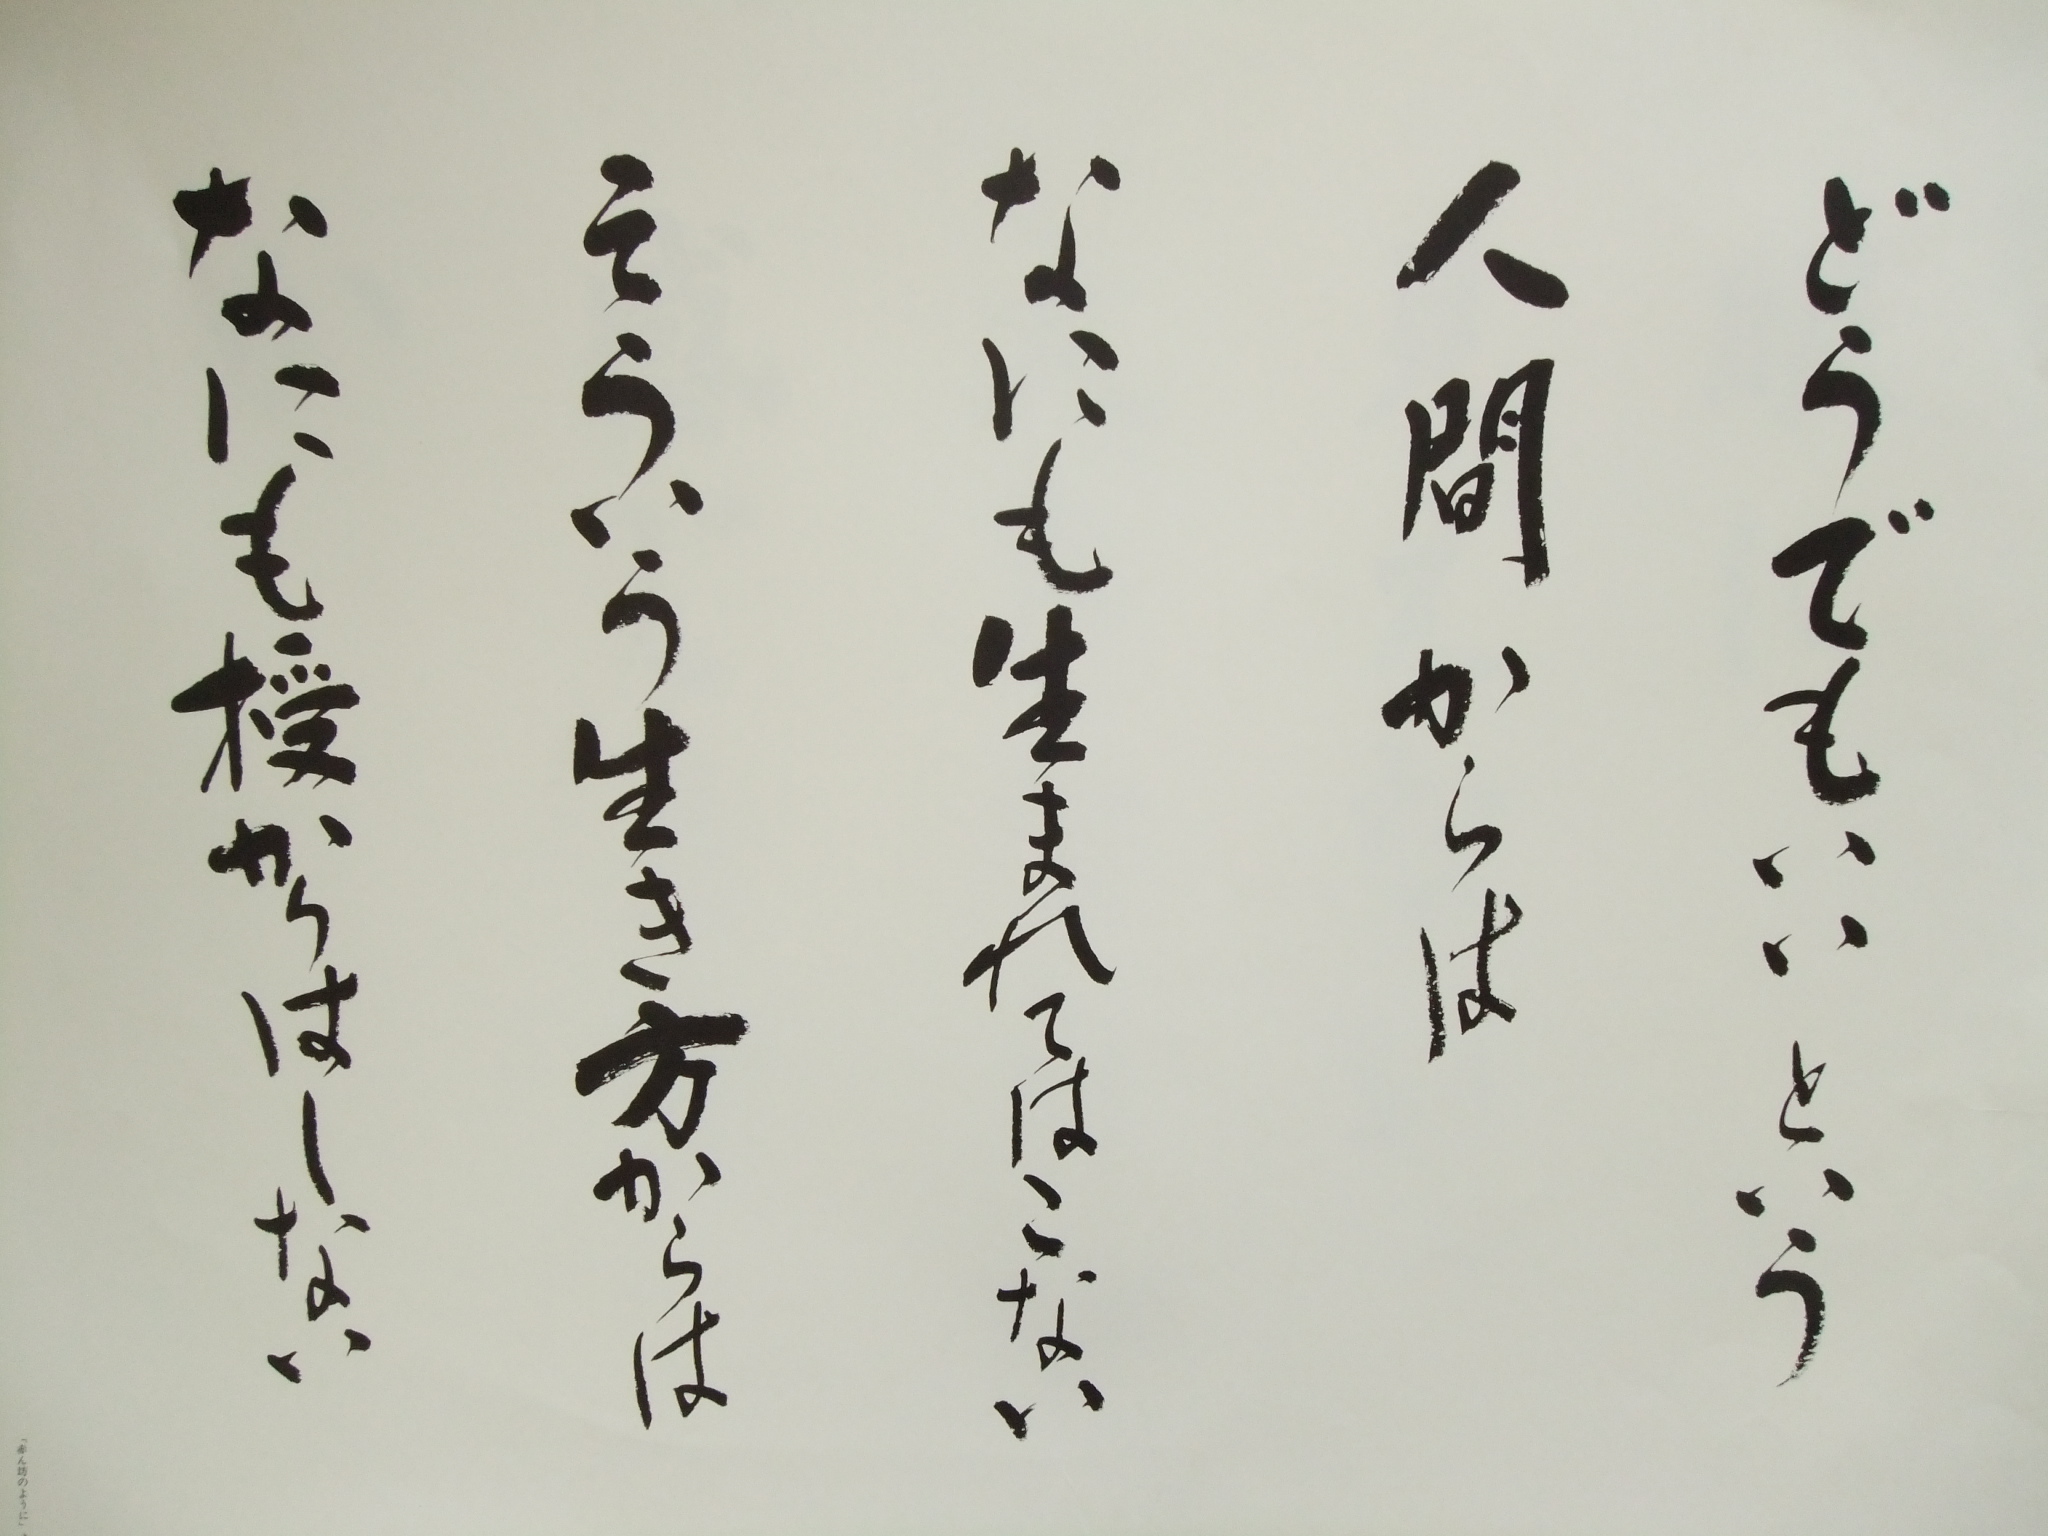 どうでもいいという
人間からは
なにも生まれてはこない
そういう生き方からは
なにも授からはしない
「赤ん坊のように」